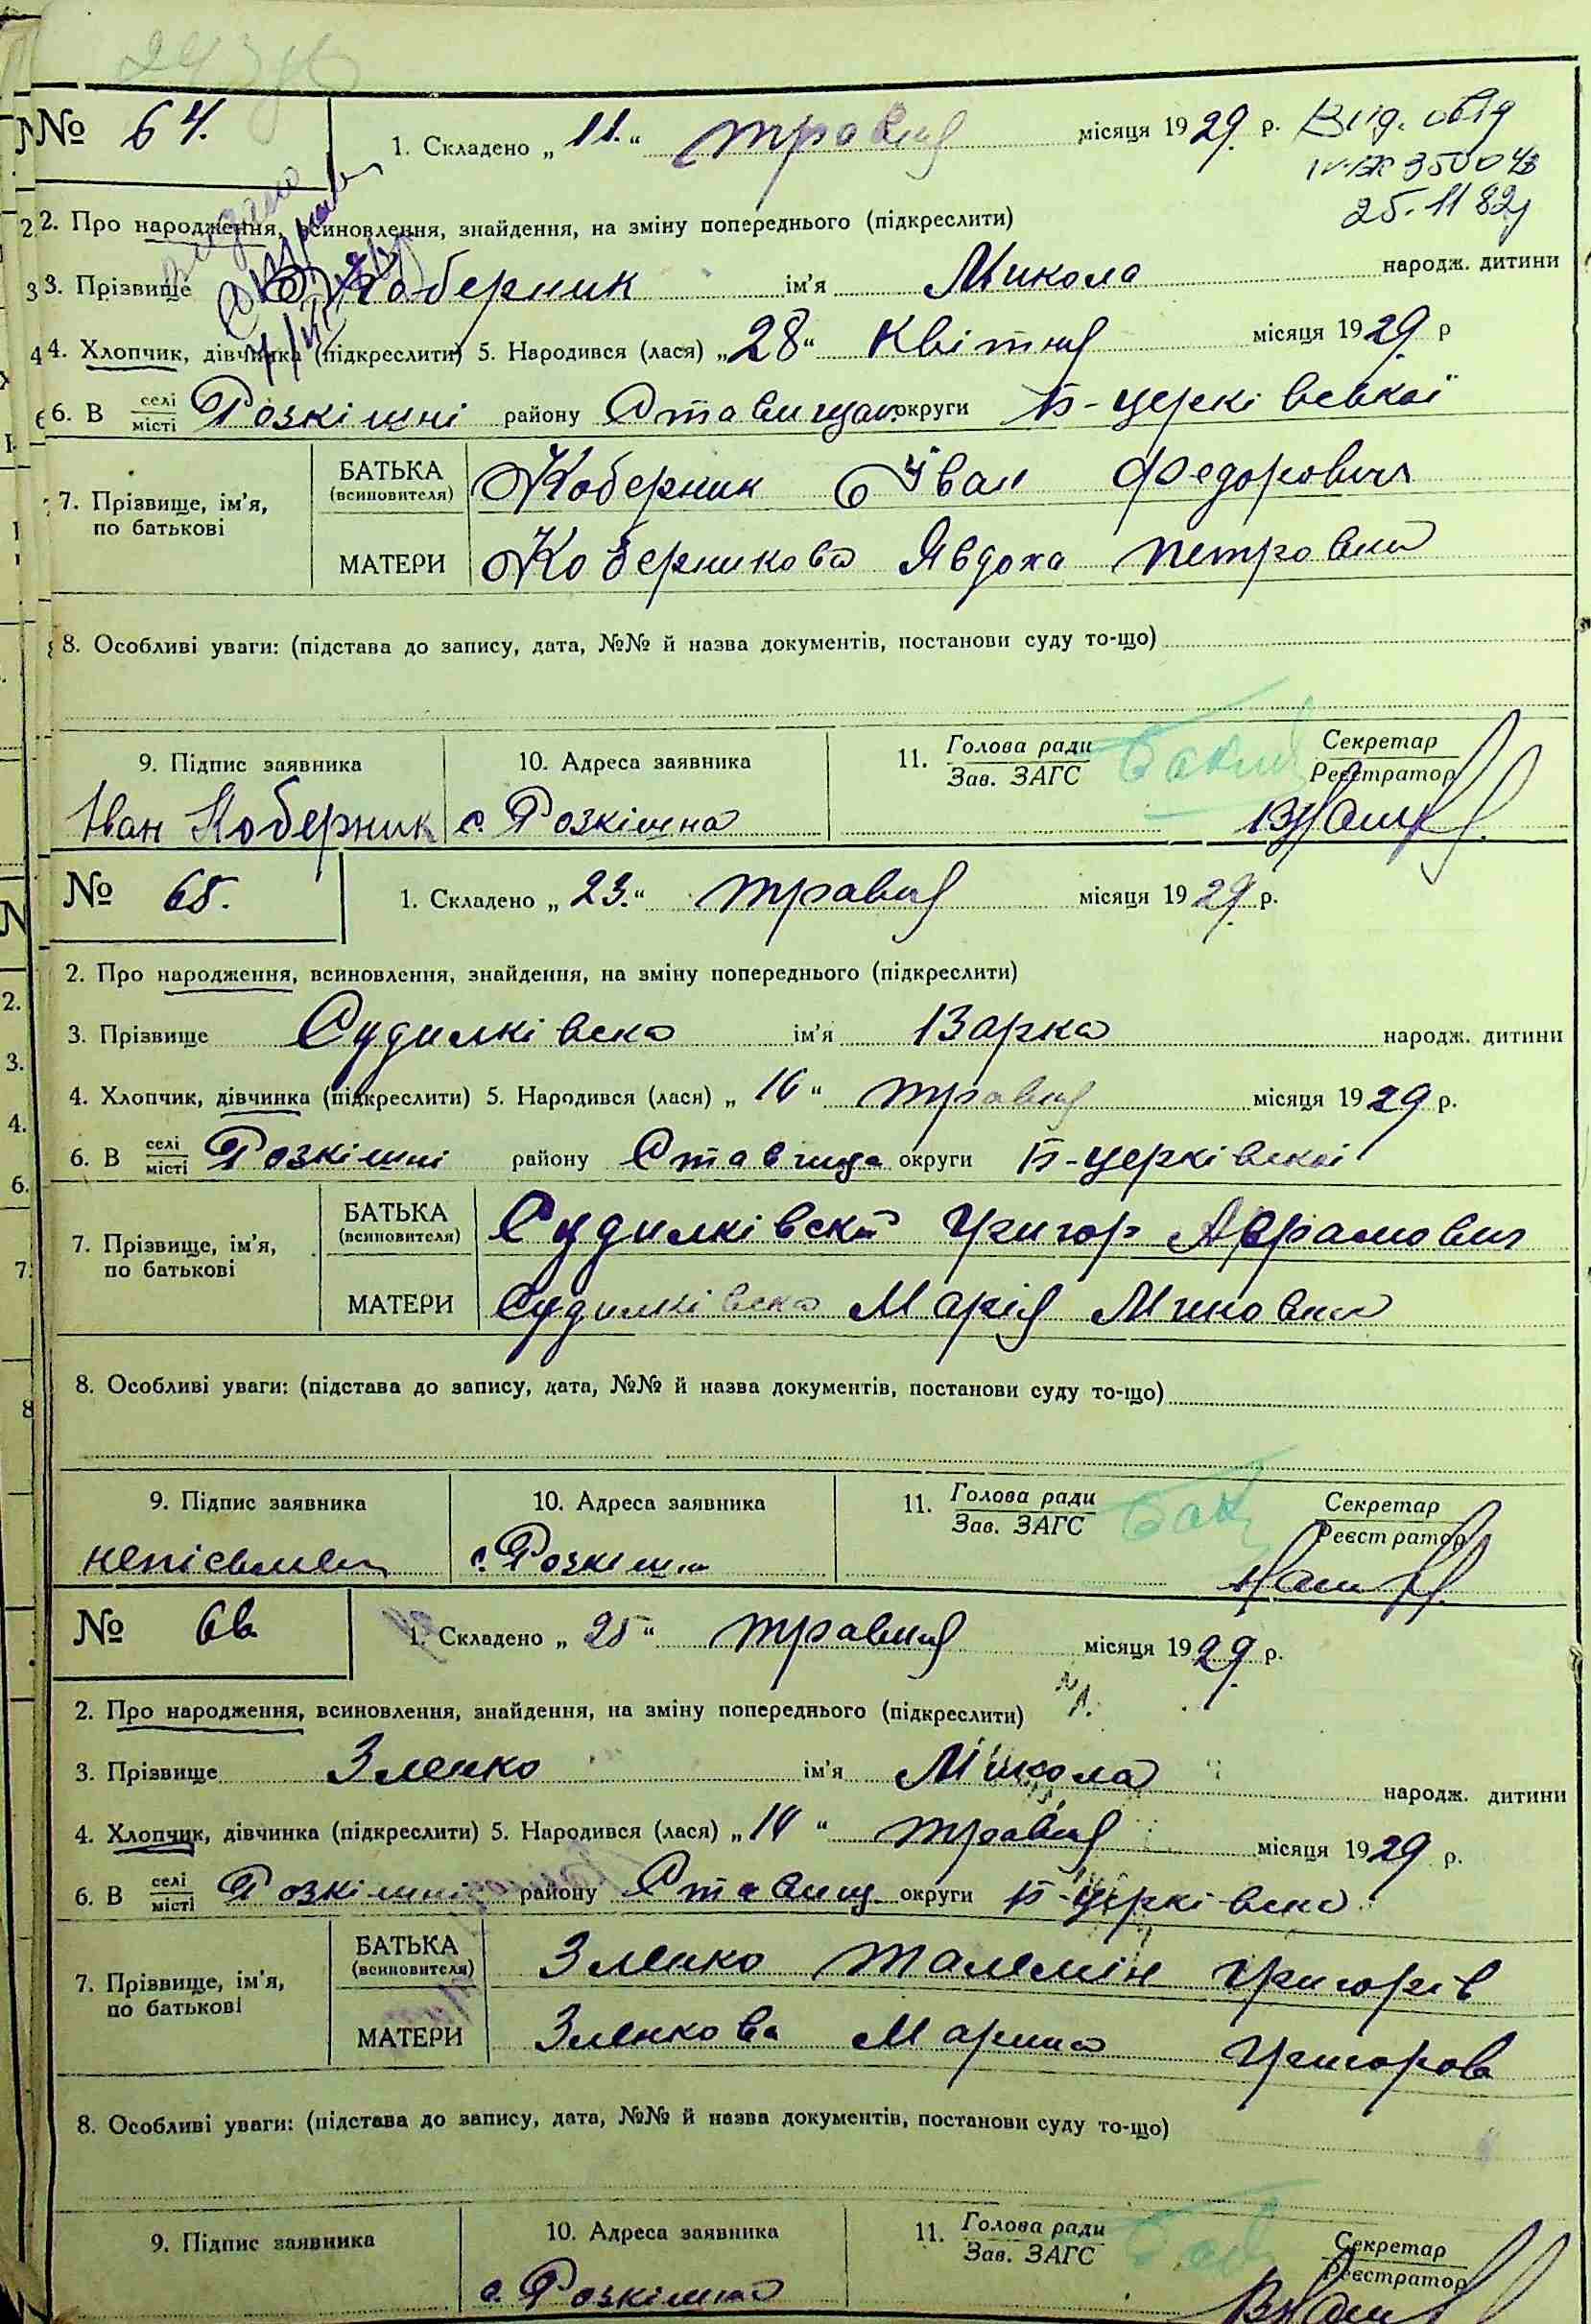 № 64. 1. Складено „11.“ травня місяця 1929. р. Вид. овід
25.11 82
2. Про народження, всиновлення, знайдення, на зміну попереднього (підкреслити)
3. Прізвище Коберник ім'я Микола народж. дитини
4. Хлопчик, дівчинка (підкреслити) 5. Народився (лася) „28“ Квітня місяця 1929. р
6. В селі місті Розкішні району Ставищан. округи Б-церківської
7. Прізвище, ім'я, по батькові БАТЬКА (всиновителя) Коберник Іван Федорович
МАТЕРИ Коберникова Явдоха Петровна
8. Особливі уваги: (підстава до запису, дата, №№ й назва документів, постанови суду то-що)
9. Підпис заявника 10. Адреса заявника 11. Голова ради Зав. ЗАГС Секретар Реєстратор
Іван Коберник с. Розкішна
№ 65. 1. Складено „23.“ травня місяця 1929. р.
2. Про народження, всиновлення, знайдення, на зміну попереднього (підкреслити)
3. Прізвище Судилківска ім'я Варка народж. дитини
4. Хлопчик, дівчинка (підкреслити) 5. Народився (лася) „16“ травня місяця 1929 р.
6. В селі місті Розкішні району Ставища округи Б-церківскої
7. Прізвище, ім'я, по батькові БАТЬКА (всиновителя) Судилківскій Григор Аврамович
МАТЕРИ Судилківска Марія Миновна
8. Особливі уваги: (підстава до запису, дата, №№ й назва документів, постанови суду то-що)
9. Підпис заявника 10. Адреса заявника 11. Голова ради Зав. ЗАГС Секретар Реєстратор
непісьмен с. Розкішна
№ 66 1. Складено „25“ травня місяця 1929. р.
2. Про народження, всиновлення, знайдення, на зміну попереднього (підкреслити)
3. Прізвище Зленко ім'я Микола народж. дитини
4. Хлопчик, дівчинка (підкреслити) 5. Народився (лася) „14“ травня місяця 1929 р.
6. В селі місті Розкішні району Ставищ. округи Б-церківско
7. Прізвище, ім'я, по батькові БАТЬКА (всиновителя) Зленко Григорів
МАТЕРИ Зленкова Марина Григорова
8. Особливі уваги: (підстава до запису, дата, №№ й назва документів, постанови суду то-що)
9. Підпис заявника 10. Адреса заявника 11. Голова ради Зав. ЗАГС Секретар Реєстратор
с. Розкішна